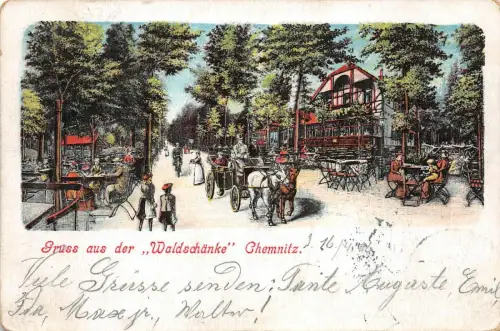 Gruss aus der „Waldschänke" Chemnitz.
Vyle Grüsse senden: Tante Auguste, Emil
Ida, Max jr., Walter!